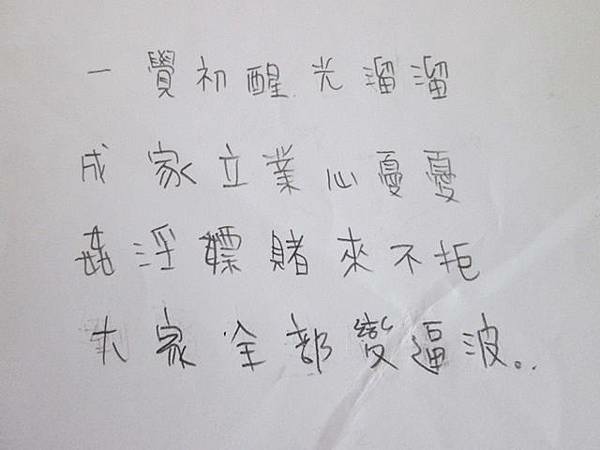 一覺初醒光溜溜
成家立業心憂憂
姦淫嫖賭來不拒
大家全部變逼波。